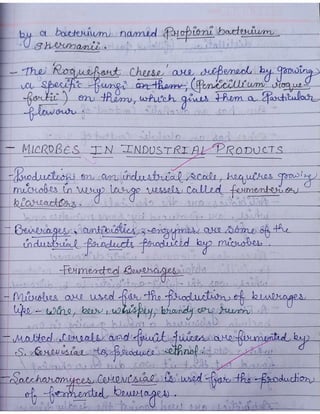 by a bacterium named Propioni bacterium
shermanii.
- The Roquefort cheese are ripened by growing
a specific fungi on them, (Penicillium roque-
fortii) on them, which gives them a particular
flavour.
- MICROBES IN INDUSTRIAL PRODUCTS
- Production on an industrial scale, requires growing
microbes in very large vessels called fermentor or
bioreactors.
- Beverages, antibiotics, enzymes are some of the
industrial products produced by microbes.
- Fermented Beverages
- Microbes are used for the production of beverages
like - wine, beer, whiskey, brandy or rum
- Malted cereals and fruit juices are fermented by
S. cerevisiae to produce ethnol.
- Saccharomyces cerevisiae is used for the production
of fermented beverages.